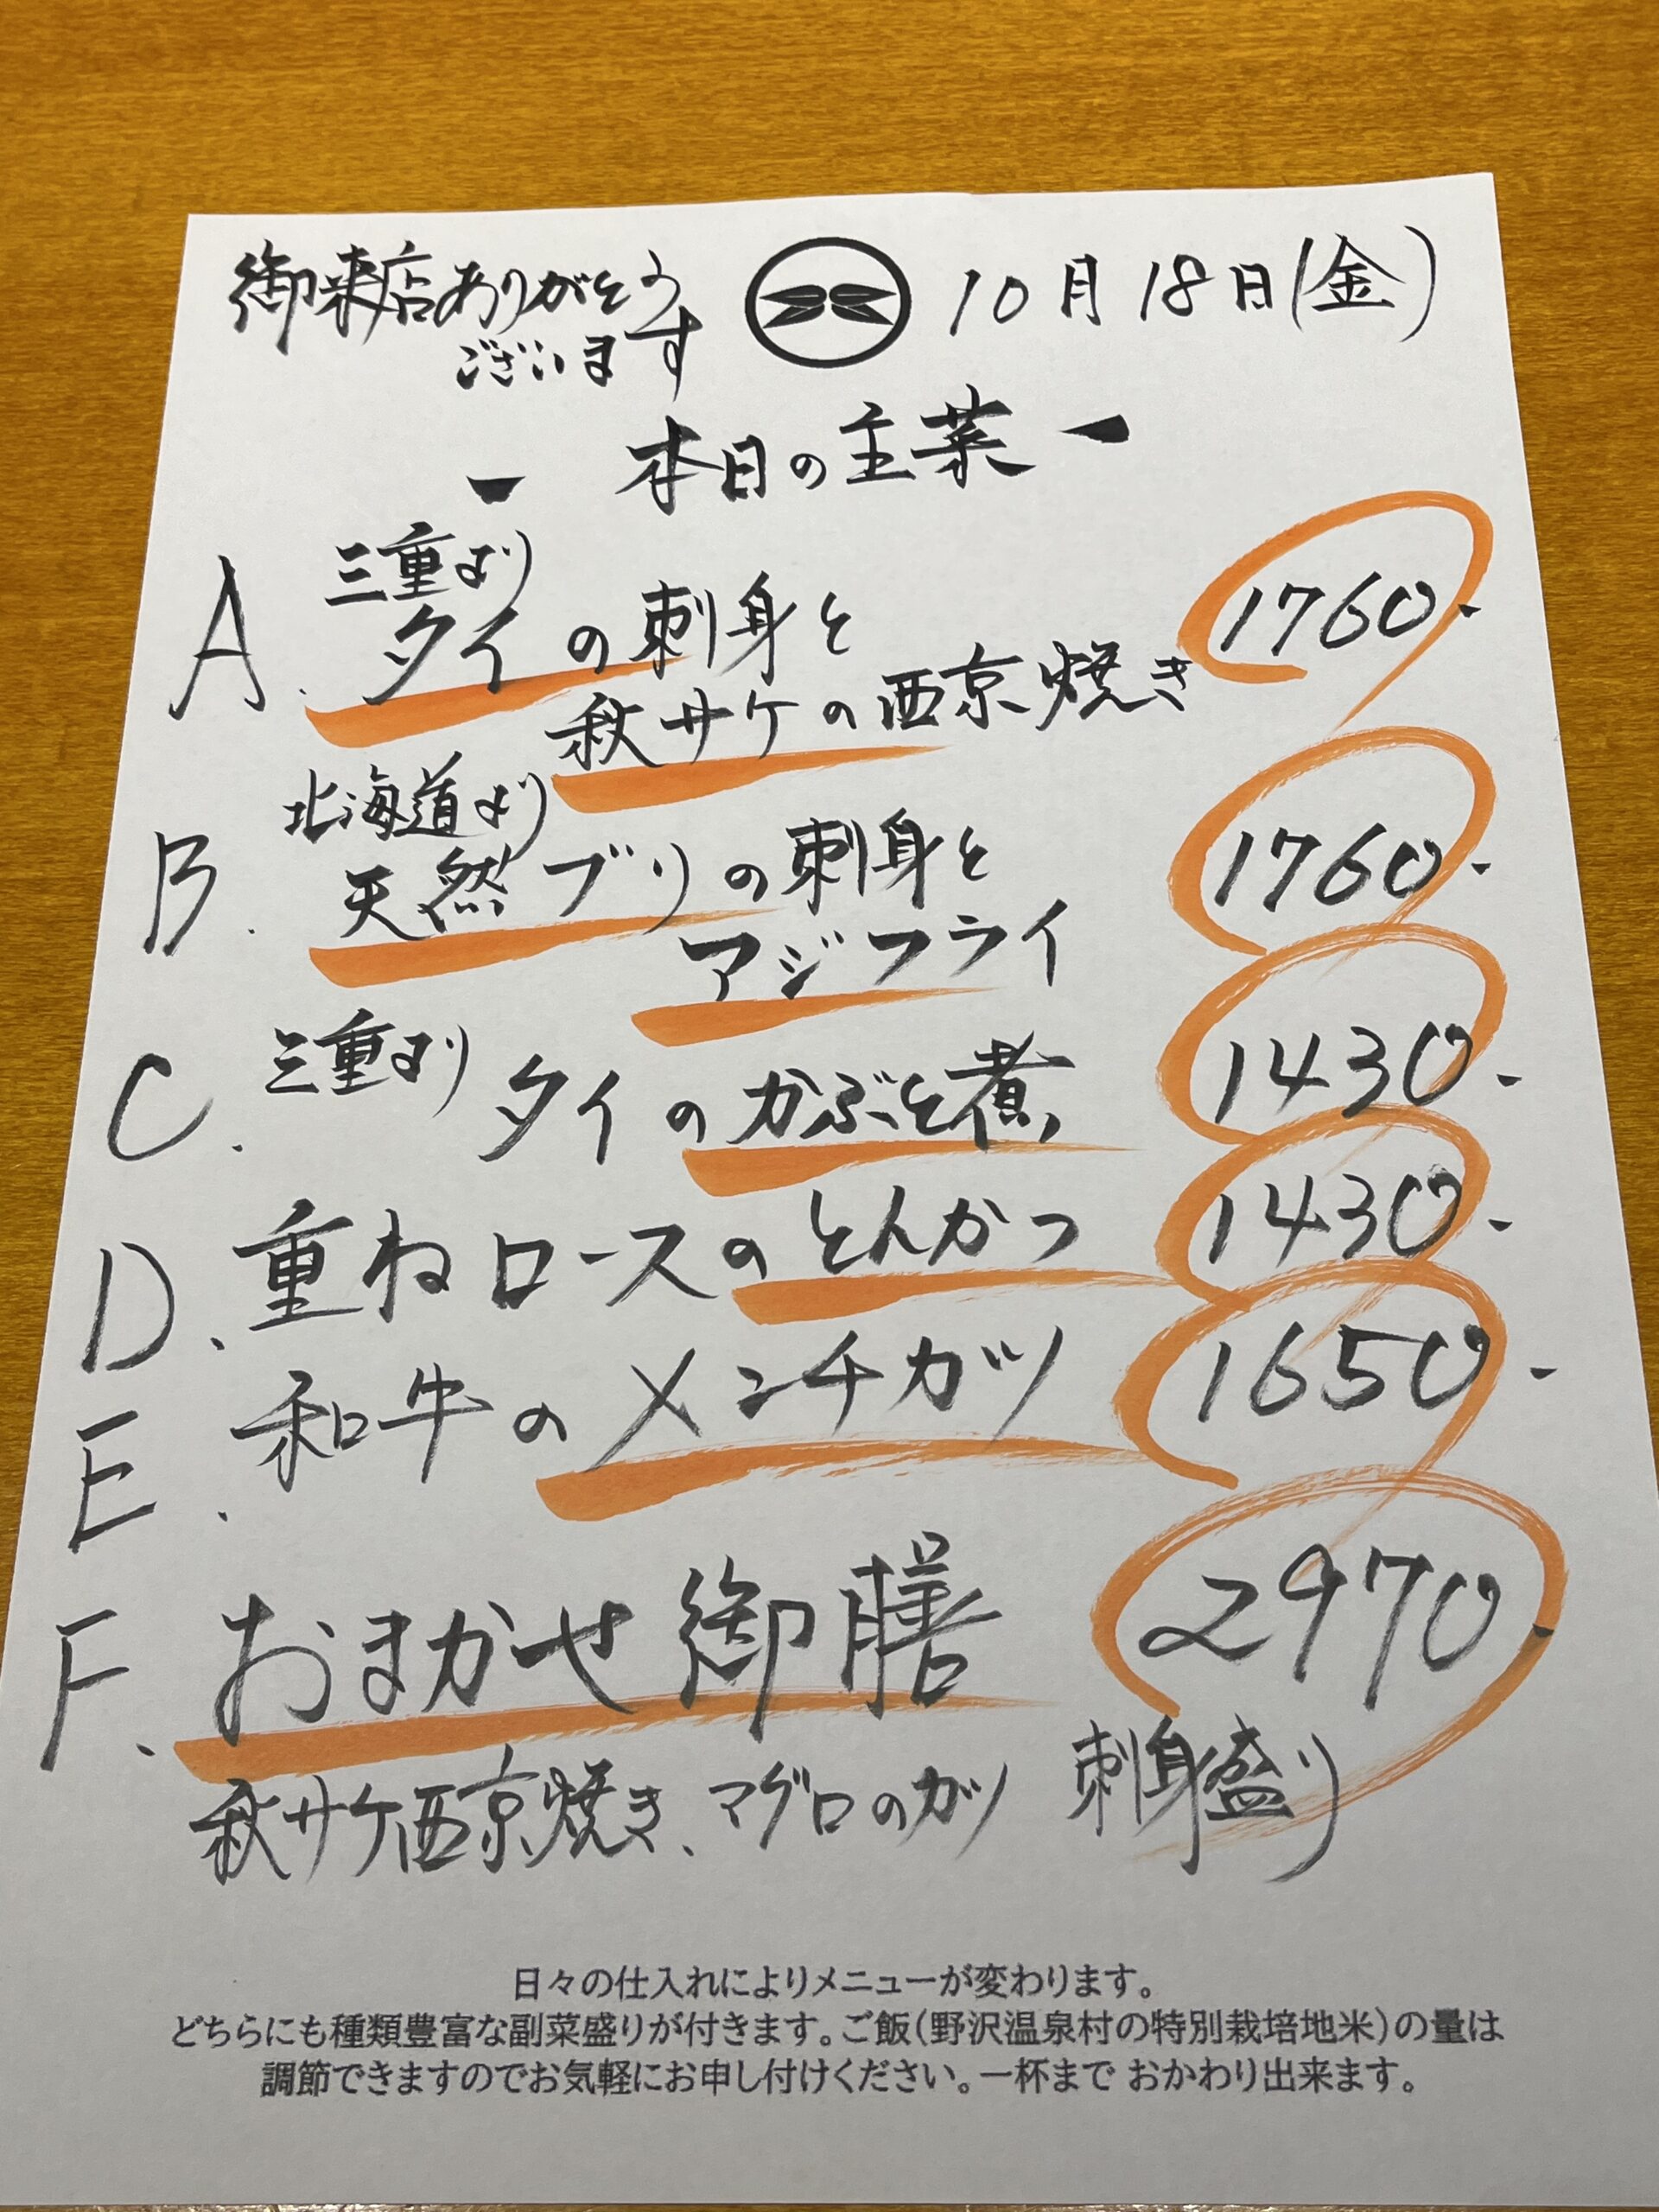 御来店ありがとう
ございます
10月18日(金)
ー 本日の主菜 ー
A. 三重より
タイの刺身と
秋サケの西京焼き
1760-
B. 北海道より
天然ブリの刺身と
アジフライ
1760-
C. 三重より タイのかぶと煮 1430-
D. 重ねロースのとんかつ 1430-
E. 和牛のメンチカツ 1650-
F. おまかせ御膳 2970-
秋サケ西京焼き、マグロのカツ 刺身盛り
日々の仕入れによりメニューが変わります。
どちらにも種類豊富な副菜盛りが付きます。ご飯(野沢温泉村の特別栽培地米)の量は
調節できますのでお気軽にお申し付けください。一杯まで おかわり出来ます。